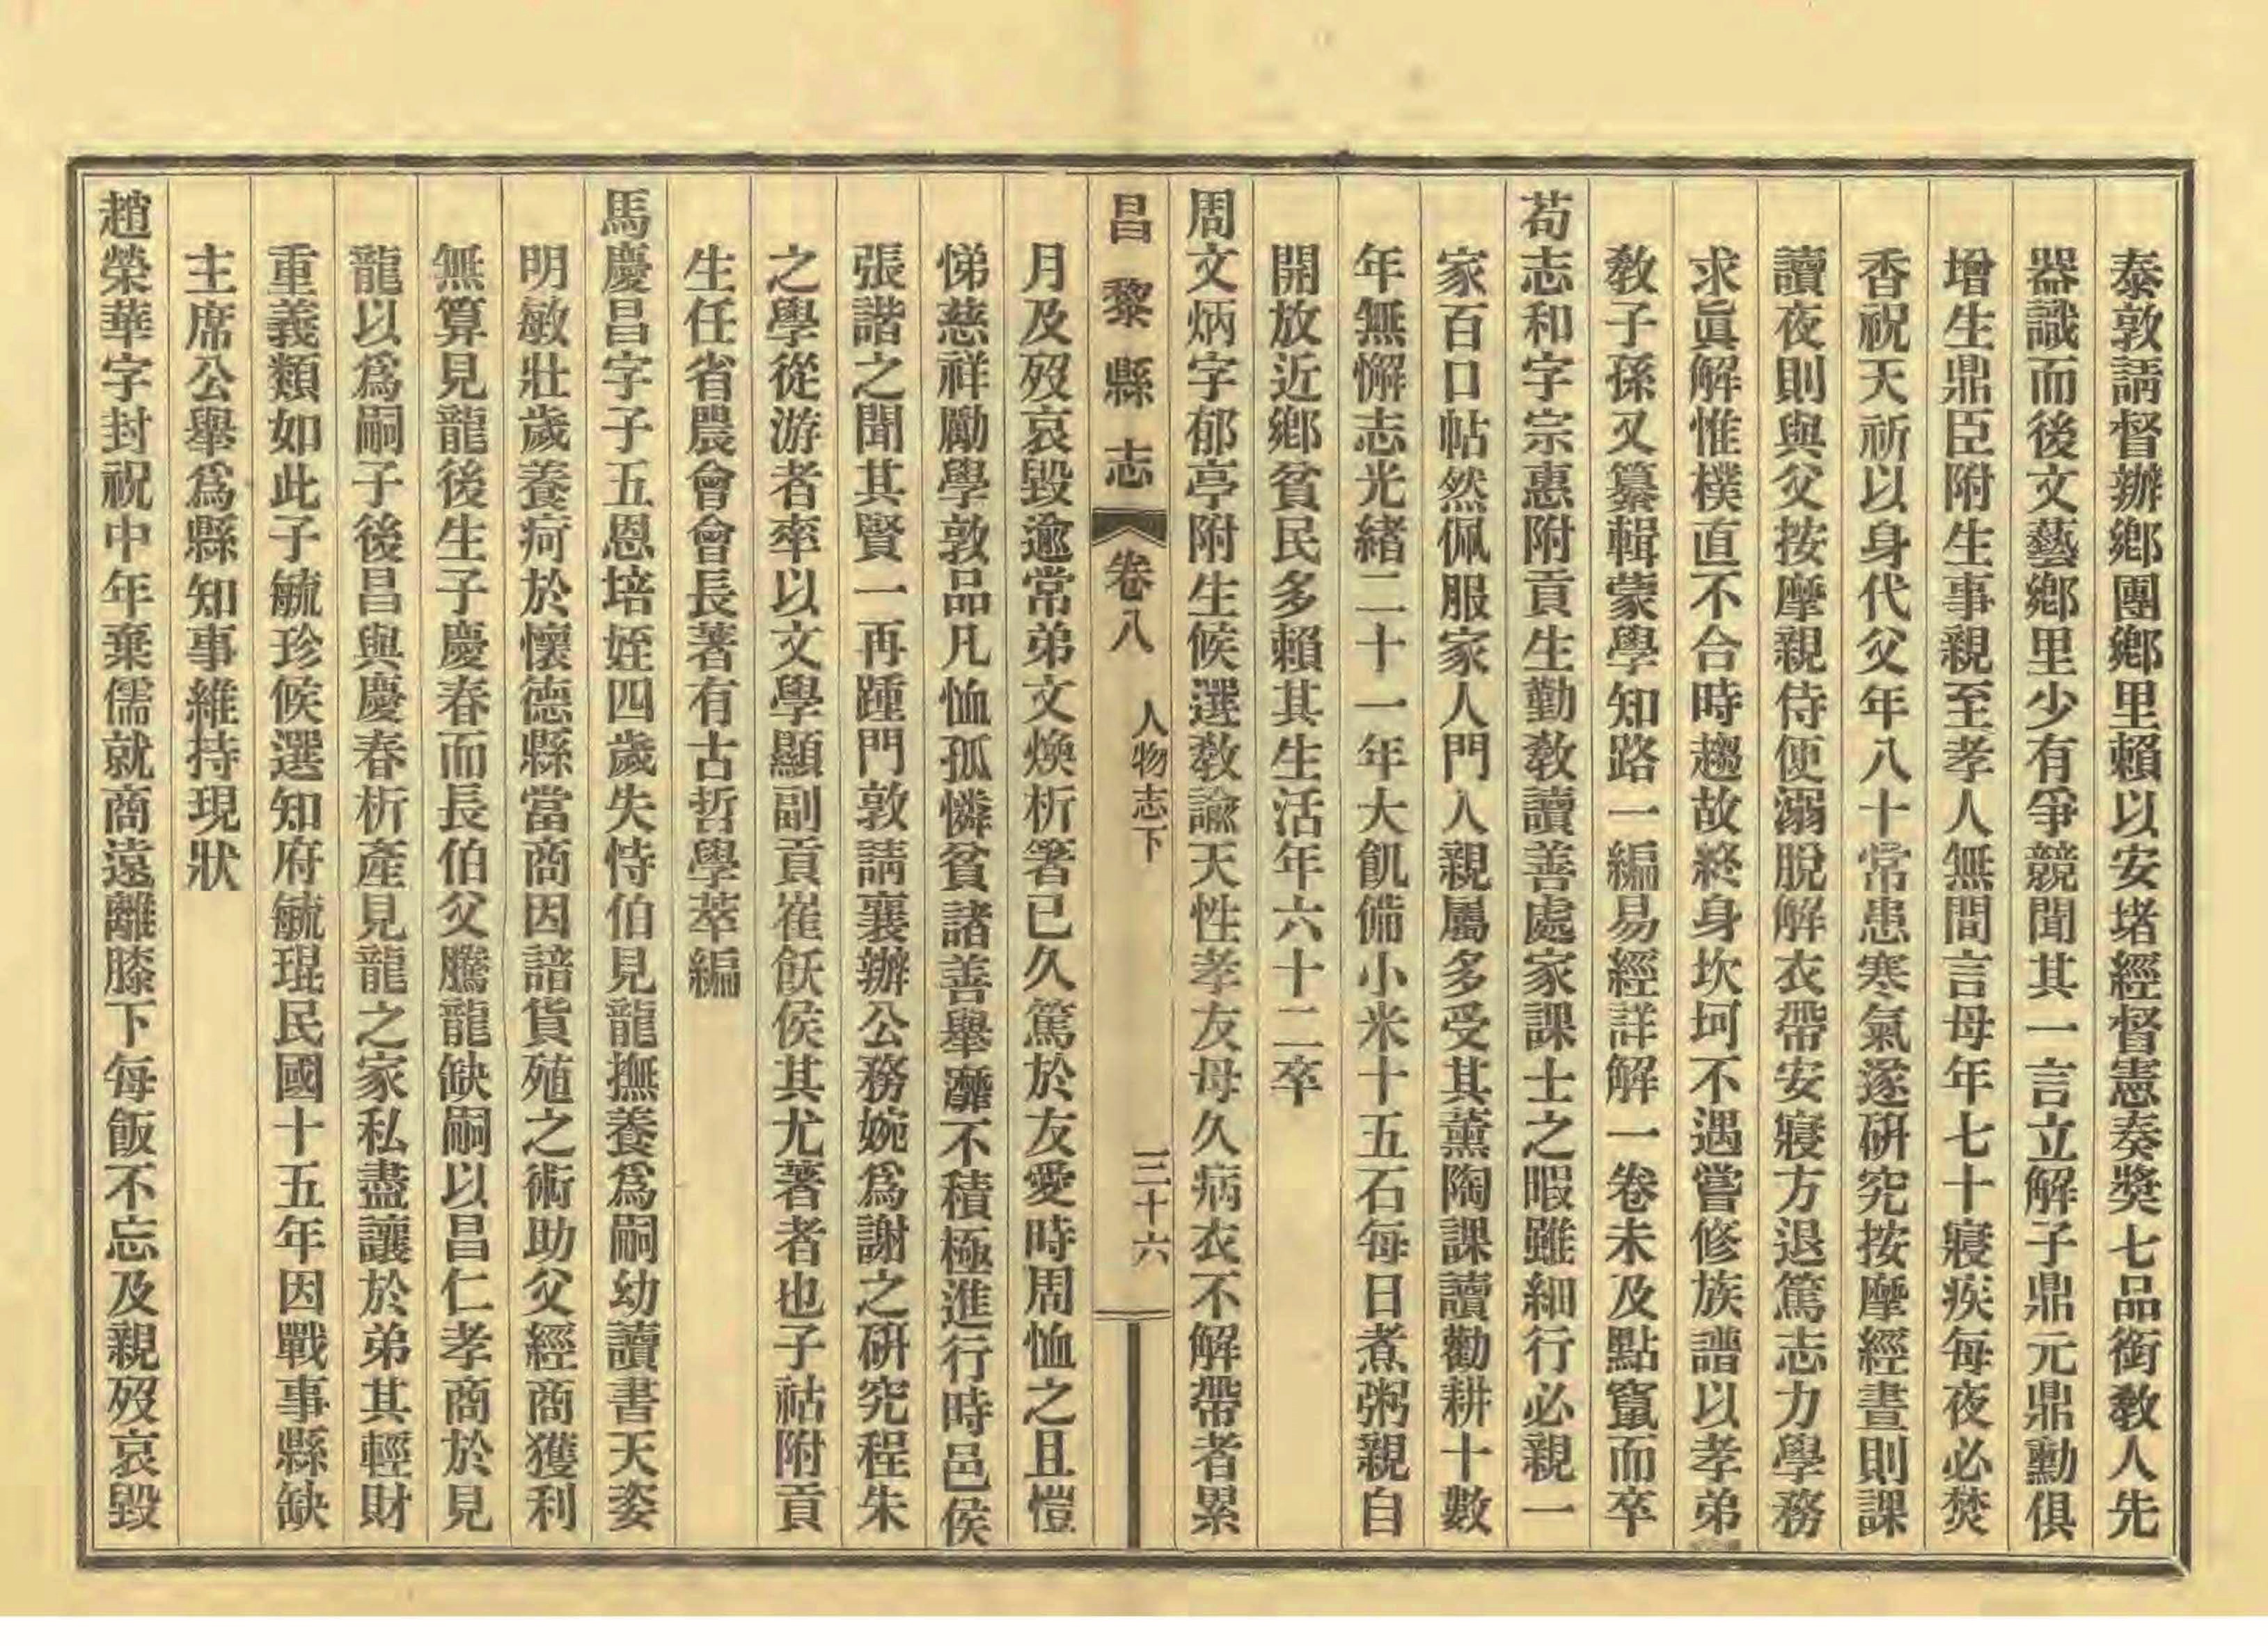 泰敦請督辦鄉團鄉里賴以安堵經督憲奏奬七品銜敎人先
器識而後文藝鄉里少有爭競聞其一言立解子鼎元鼎勳俱
增生鼎臣附生事親至孝人無間言母年七十寢疾每夜必焚
香祝天祈以身代父年八十常患寒氣遂硏究按摩經晝則課
讀夜則與父按摩親侍便溺脫解衣帶安寢方退篤志力學務
求眞解惟樸直不合時趨故終身坎坷不遇嘗修族譜以孝弟
敎子孫又纂輯蒙學知路一編易經詳解一卷未及點竄而卒
荀志和字宗惠附貢生勤敎讀善處家課士之暇雖細行必親一
家百口帖然佩服家人門入親屬多受其薰陶課讀勸耕十數
年無懈志光緖二十一年大飢備小米十五石每日煮粥親自
開放近鄉貧民多賴其生活年六十二卒
周文炳字郁亭附生候選敎諭天性孝友母久病衣不解帶者累
昌黎縣志
卷八
人物志下
三十六
月及歿哀毀逾常弟文煥析箸已久篤於友愛時周恤之且愷
悌慈祥勵學敦品凡恤孤憐貧諸善舉靡不積極進行時邑侯
張諧之聞其賢一再踵門敦請襄辦公務婉爲謝之硏究程朱
之學從游者率以文學顯副貢崔飫侯其尤著者也子祜附貢
生任省農會會長著有古哲學萃編
馬慶昌字子五恩培姪四歲失恃伯見龍撫養爲嗣幼讀書天姿
明敏壯歲養疴於懷德縣當商因諳貨殖之術助父經商獲利
無算見龍後生子慶春而長伯父騰龍缺嗣以昌仁孝商於見
龍以爲嗣子後昌與慶春析產見龍之家私盡讓於弟其輕財
重義類如此子毓珍候選知府毓琨民國十五年因戰事縣缺
主席公舉爲縣知事維持現狀
趙榮華字封祝中年棄儒就商遠離膝下每飯不忘及親歿哀毀